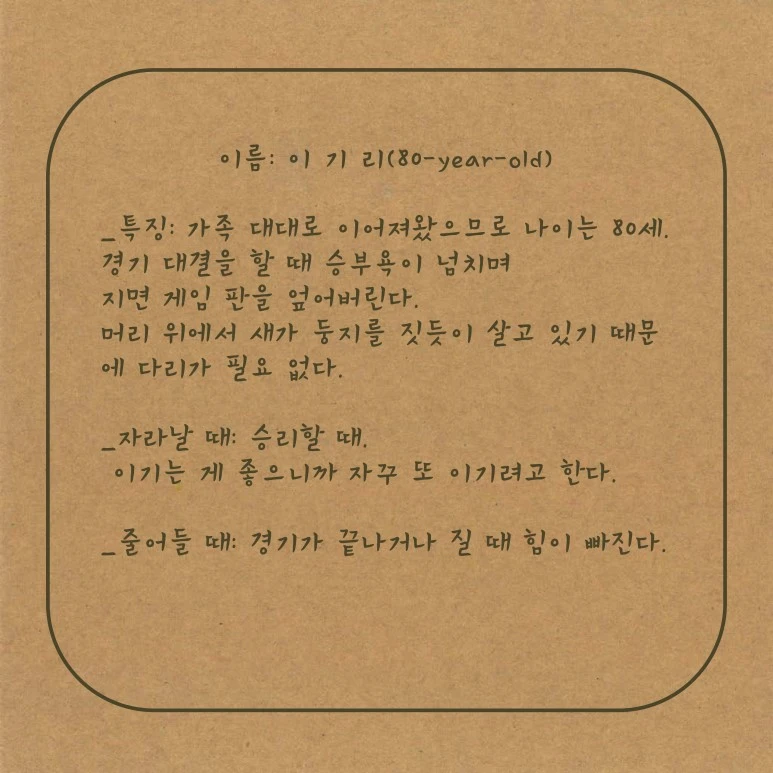 이름: 이 기 리(80-year-old)
_특징: 가족 대대로 이어져왔으므로 나이는 80세.
경기 대결을 할 때 승부욕이 넘치며
지면 게임 판을 엎어버린다.
머리 위에서 새가 둥지를 짓듯이 살고 있기 때문
에 다리가 필요 없다.
_자라날 때: 승리할 때.
이기는 게 좋으니까 자꾸 또 이기려고 한다.
_줄어들 때: 경기가 끝나거나 질 때 힘이 빠진다.